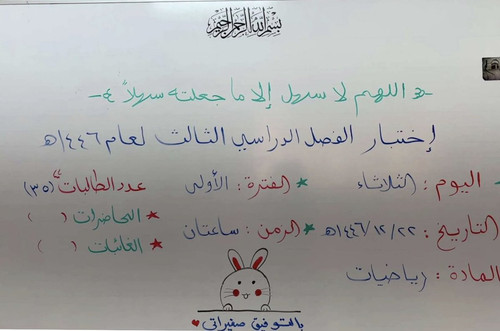 بسم الله الرحمن الرحيم
اللهم لا سهل إلا ما جعلته سهلاً
إختبار الفصل الدراسي الثالث لعام ١٤٤٦هـ
اليوم : الثلاثاء * الفترة : الأولى عدد الطالبات (٣٥)
التاريخ : ١٤٤٦/١٢/٢٢هـ * الزمن : ساعتان * الحاضرات ( )
المادة : رياضيات * الغائبات ( )
بالتوفيق صغيراتي